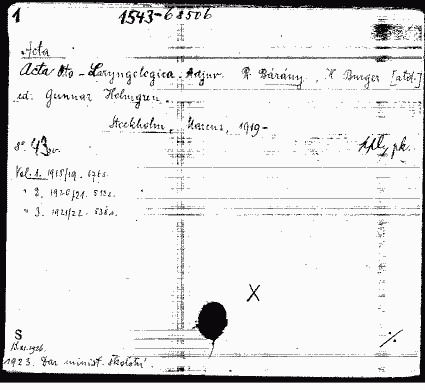 1 1543-68506
Acta
Acta Oto-Laryngologica. Adjuv. R. Bárány, H. Burger [atd.]
ed. Gunnar Holmgren.
Stockholm, 1919-
8° 43
Vol. 1. 1918/19. 676 s.
" 2. 1920/21. 512 s.
" 3. 1921/22. 538 s.
X
S
1923. Dar minist. školství.